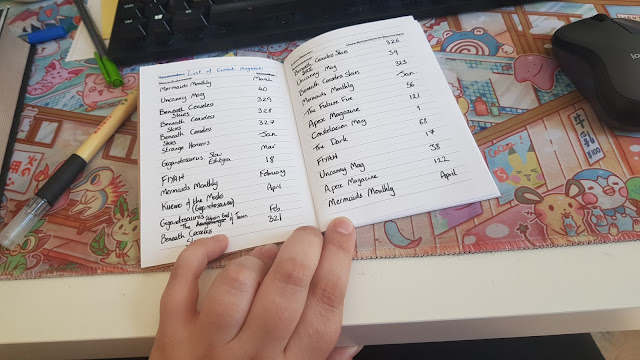 List of Current Magazines
Mermaids Monthly March
Uncanny Mag 40
Beneath Ceaseless Skies 329
Beneath Ceaseless Skies 328
Beneath Ceaseless Skies 327
Strange Horrors Jan
Giganotosaurus: Slow Mar
FIYAH 18
Mermaids Monthly February
of the Masks April
(Giganotosaurus)
Giganotosaurus Feb
The of Town
Beneath Ceaseless 321
Beneath Ceaseless Skies 326
Uncanny Mag 39
Beneath Ceaseless Skies 323
Mermaids Monthly Jan
The Future Fire 56
Apex Magazine 121
Constelacion Mag 1
The Dark 68
FIYAH 17
Uncanny Mag 38
Apex Magazine 122
Mermaids Monthly April